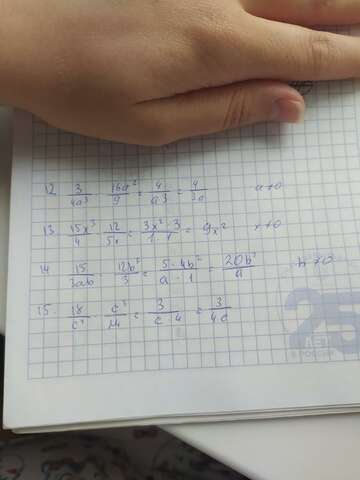 12. 3/4a³ · 16a²/9 = 4/a3 = 4/3a a≠0
13. 15x³/4 · 12/5x = 3x²·3/1·1 = 9x² x≠0
14. 15/3ab · 12b²/3 = 5·4b²/a·1 = 20b²/a b≠0
15. 18/c⁴ · = 3/c·4 = 3/4c
25
ЛЕТ
В РОССИИ